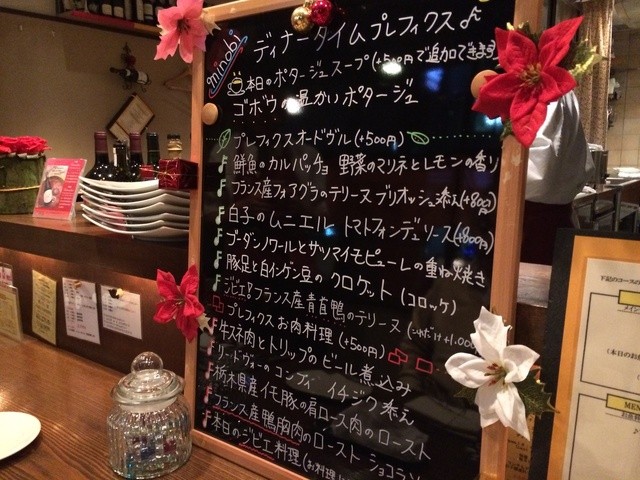 minobi
ディナータイムプレフィクス♪
本日のポタージュスープ(+500円で追加できます
ゴボウの温かいポタージュ
プレフィクスオードヴル(+500円)
鮮魚のカルパッチョ 野菜のマリネとレモンの香り
フランス産フォアグラのテリーヌ ブリオッシュ添え(+800円)
白子のムニエル トマトフォンデュソース(+800円)
ブーダンノワールとサツマイモピューレの重ね焼き
豚足と白インゲン豆のクロケット(コロッケ)
ジビエ!フランス産青首鴨のテリーヌ
プレフィクスお肉料理(+500円)
牛スネ肉とトリップのビール煮込み
リードヴォーのコンフィ イチジク添え
栃木県産イモ豚の肩ロース肉のロースト
フランス産鴨胸肉のロースト ショコラソ
本日のジビエ料理(お料理
下記のコースの
メイン
(本日のお
MENU